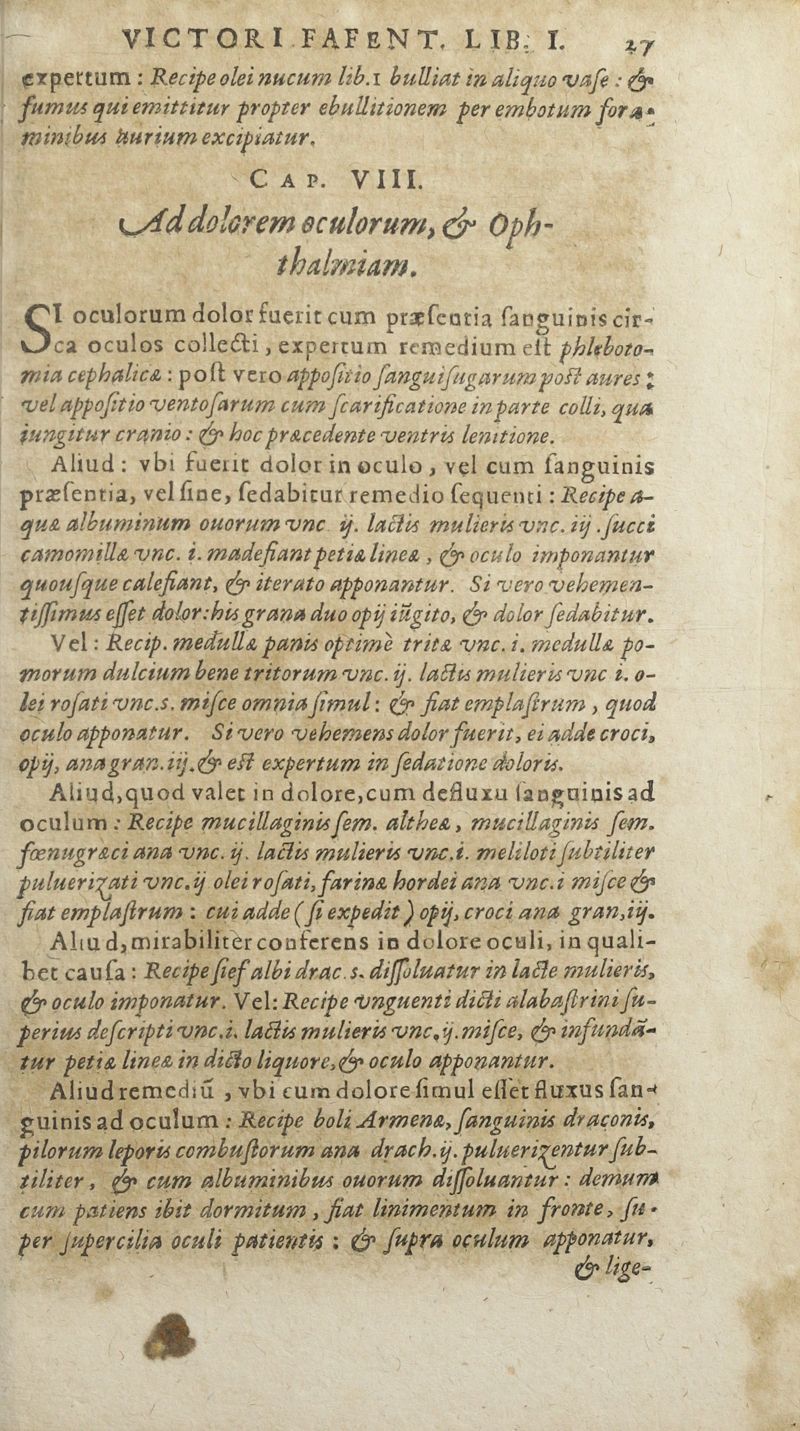 VICTORI FAFENT. LIB. I. 27
expertum : Recipe olei nucum lib.1 bulliat in aliquo vaſe : &
fumus qui emittitur propter ebullitionem per embotum fora-
minibus aurium excipiatur.
CAP. VIII.
Ad dolorem oculorum, & Oph-
thalmiam.
SI oculorum dolor fuerit cum præſentia ſanguinis cir-
ca oculos collecti, expertum remedium eſt phleboto-
mia cephalicæ : poſt vero appoſitio ſanguiſugarum post aures :
vel appoſitio ventoſarum cum ſcarificatione in parte colli, qua
iungitur cranio : & hoc præcedente ventris lenitione.
Aliud : vbi fuerit dolor in oculo, vel cum ſanguinis
præſentia, vel ſine, ſedabitur remedio ſequenti : Recipe a-
quæ albuminum ouorum vnc. ij. lactis mulieris vnc. iij. ſucci
camomillæ vnc. i. madefiant petiæ lineæ, & oculo imponantur
quouſque calefiant, & iterato apponantur. Si vero vehemen-
tiſſimus eſſet dolor: his grana duo opij iūgito, & dolor ſedabitur.
Vel : Recip. medullæ panis optime tritæ vnc. i. medullæ po-
morum dulcium bene tritorum vnc. ij. lactis mulieris vnc i. o-
lei roſati vnc.s. miſce omnia ſimul : & fiat emplaſtrum, quod
oculo apponatur. Si vero vehemens dolor fuerit, ei adde croci,
opij, ana gran. iij. & est expertum in ſedatione doloris.
Aliud, quod valet in dolore, cum defluxu ſanguinis ad
oculum : Recipe mucillaginis ſem. altheæ, mucillaginis ſem.
fœnugræci ana vnc. ij. lactis mulieris vnc.i. meliloti ſubtiliter
puluerizati vnc.ij olei roſati, farinæ hordei ana vnc.i miſce &
fiat emplaſtrum : cui adde (ſi expedit) opij, croci ana gran, iij.
Aliud, mirabiliter conferens in dolore oculi, in quali-
bet cauſa : Recipe ſief albi drac. s. diſſoluatur in lacte mulieris,
& oculo imponatur. Vel: Recipe vnguenti dicti alabaſtrini ſu-
perius deſcripti vnc.i. lactis mulieris vnc,ij. miſce, & infundā-
tur petiæ lineæ in dicto liquore, & oculo apponantur.
Aliud remediū, vbi cum dolore ſimul eſſet fluxus ſan-
guinis ad oculum : Recipe boli Armenæ, ſanguinis draconis,
pilorum leporis combuſtorum ana drach. ij. puluerizentur ſub-
tiliter, & cum albuminibus ouorum diſſoluantur : demum
cum patiens ibit dormitum, fiat linimentum in fronte, ſu-
per ſupercilia oculi patientis : & ſupra oculum apponatur,
& lige-